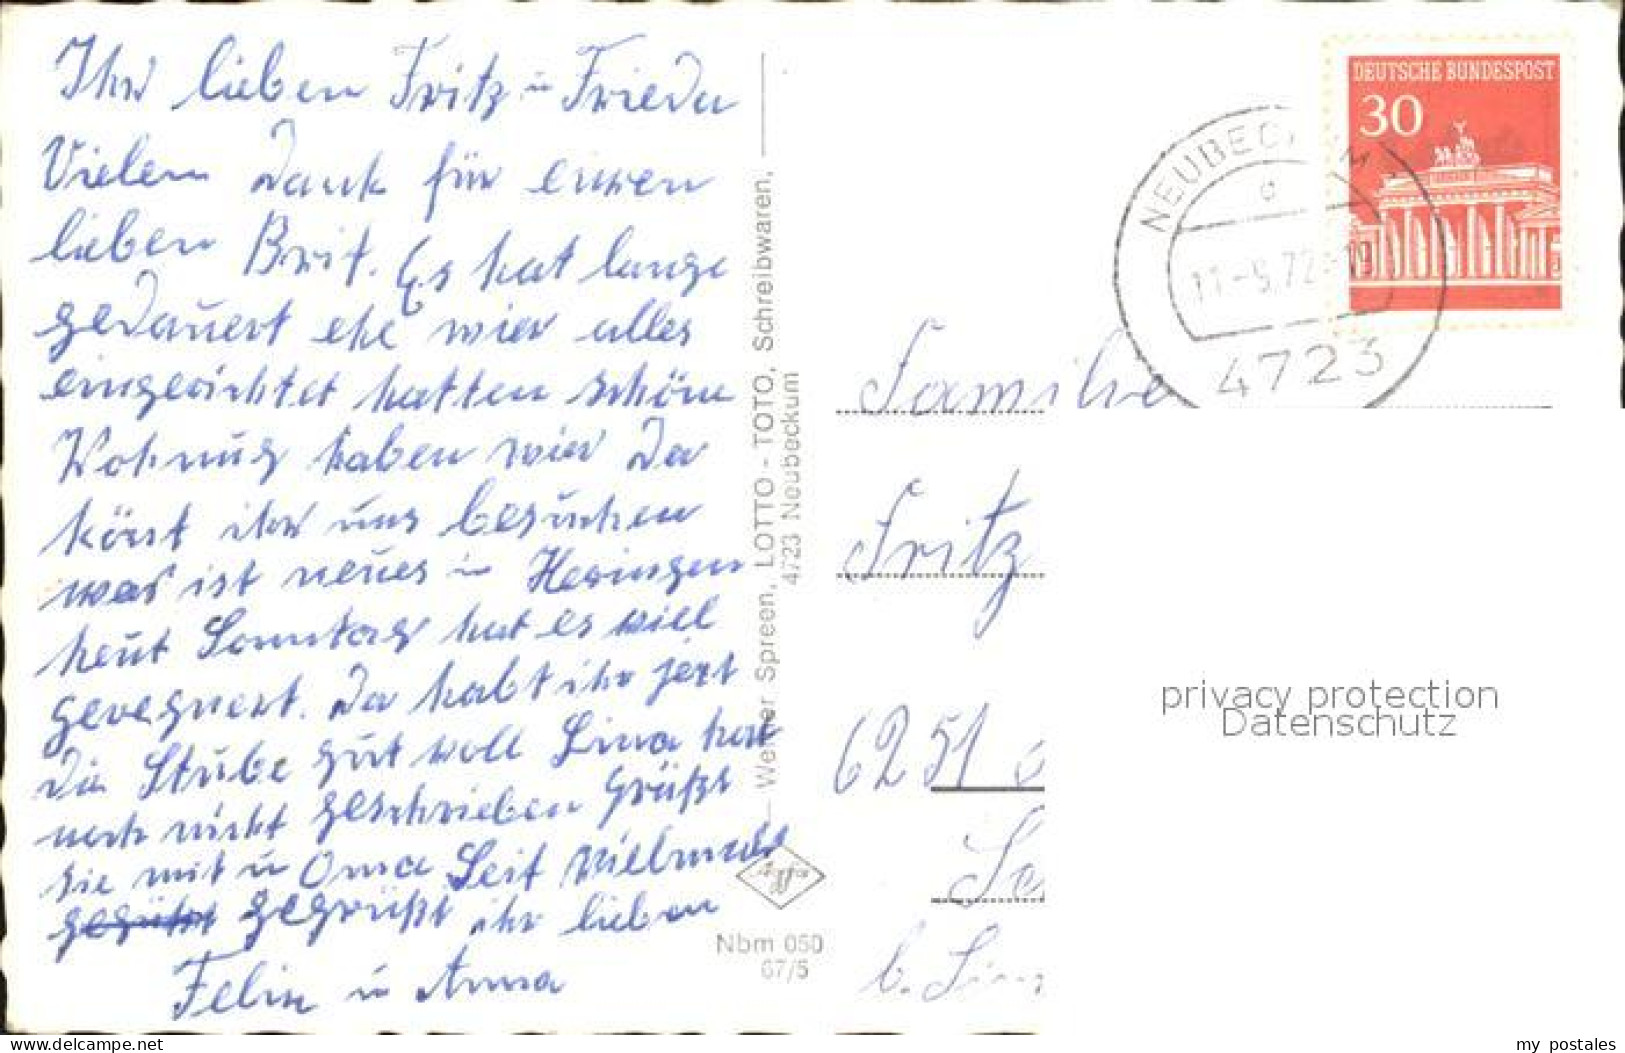 Ihr lieben Fritz u Frieda
Vielen Dank für euren
lieben Brif. Es hat lange
gedauert ehe wier alles
eingerichtet hatten schöne
Wohnung haben wier Da
könt ihr uns besuchen
was ist neues in Heringen
heut Sonntag hat es viel
geregnert. Da habt ihr jezt
die Stube gut voll Lina hat
noch nicht geschrieben Grüßt
sie mit u Oma Seit vielmals
gegrüßt ihr lieben
Felix u Anna
Werner Spreen, LOTTO - TOTO, Schreibwaren,
4723 Neubeckum
Agfa
Nbm 050
67/5
DEUTSCHE BUNDESPOST
30
NEUBECKUM
11-5.72-19
4723
Familie
Fritz
6251
b. Lim
privacy protection
Datenschutz
www.delcampe.net
my_postales